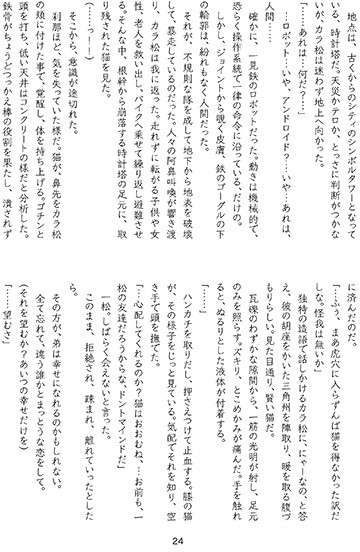 地点は、古くからのシティのシンボルタワーとなって
いる、時計塔だ。天災かテロか、とっさに判断がつかな
いが、カラ松は迷わず地上へ向かった。
「……あれは…何だ？……」
　…ロボット…いや、アンドロイド？…いや…あれは、
人間……
　確かに、一見鉄のロボットだった。動きは機械的で、
恐らく操作系統で一律の命令に沿っている、だけの。
　しかし、ジョイントから覗く皮膚、鉄のゴーグルの下
の輪郭は、紛れもなく人間だった。
　それが、不規則な隊を成して地下から地表を破壊
して、暴走しているのだった。人々の阿鼻叫喚が響き渡
り、カラ松は我に返った。走れずに転がる子供や女
性、老人を救い出し、バイクへ乗せて繰り返し避難させ
る。そんな中、根幹から崩落する時計塔の足元に、取
り残された猫を見た。
（……っー）
　そこから、意識が途切れた。
　刹那ほど、気を失っていた様だ。猫が、鼻先をカラ松
の頬に付けた事で、覚醒し、体を持ち上げる。ゴチンと
頭を打ち、低い天井はコンクリートの様だと分析した。
鉄骨がちょうどつっかえ棒の役割を果たし、潰されず
に済んだのだ。
「……ふぅ、まあ虎穴に入らずんば猫を得なかった訳だ
しな。怪我は無いか」
　独特の造語で話しかけるカラ松に、にゃーなの、と答
え、彼の胡座をかいた三角州を陣取り、暖を取る腹づ
もりらしい。見た目通り、賢い猫だ。
　瓦礫のわずかな隙間から、一筋の光明が射し、足元
のみを照らす。ズキリ、とこめかみが痛んだ。手を触れ
ると、ぬるりとした液体が付着する。
「……」
　ハンカチを取りだし、押さえつけて止血する。膝の猫
が、その様子をじっと見ている。気配でそれを知り、空
き手で頭を撫でた。
「…心配してくれるのか？猫はおおむね、…お前も、一
松の友達だろうからな、ドントマインドだ」
　一松。しばらく会えないと言った。
　このまま、拒絶され、疎まれ、離れていったとした
ら。
　その方が、弟は幸せになれるのかもしれない。
　全て忘れて、違う誰かとまっとうな恋をして。
（それを望むか？あいつの幸せだけを）
「……望むさ」
24